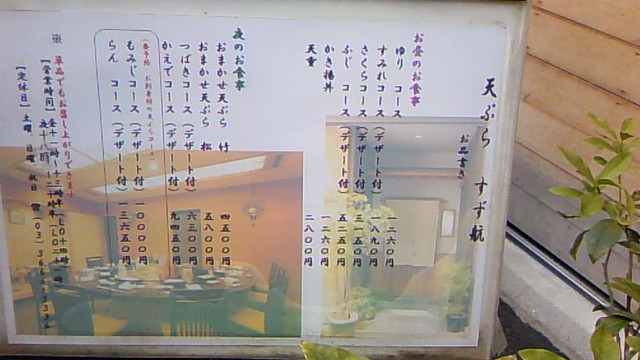 天ぷら すず航
お品書き
お昼のお食事
ゆり コース 一二六〇円
すみれコース(デザート付) 一八九〇円
さくらコース(デザート付) 三一五〇円
ふじ コース(デザート付) 五二五〇円
かき揚丼 一二六〇円
天重 二八〇〇円
夜のお食事
おまかせ天ぷら 竹 四五〇〇円
おまかせ天ぷら 松 五八〇〇円
つばきコース(デザート付) 六三〇〇円
かえでコース(デザート付) 九四五〇円
もみじコース(デザート付) 一〇〇〇〇円
らん コース(デザート付) 一三六五〇円
※ 単品でもお召し上がりできます
【営業時間】
【定休日】 土曜 日曜 祝日